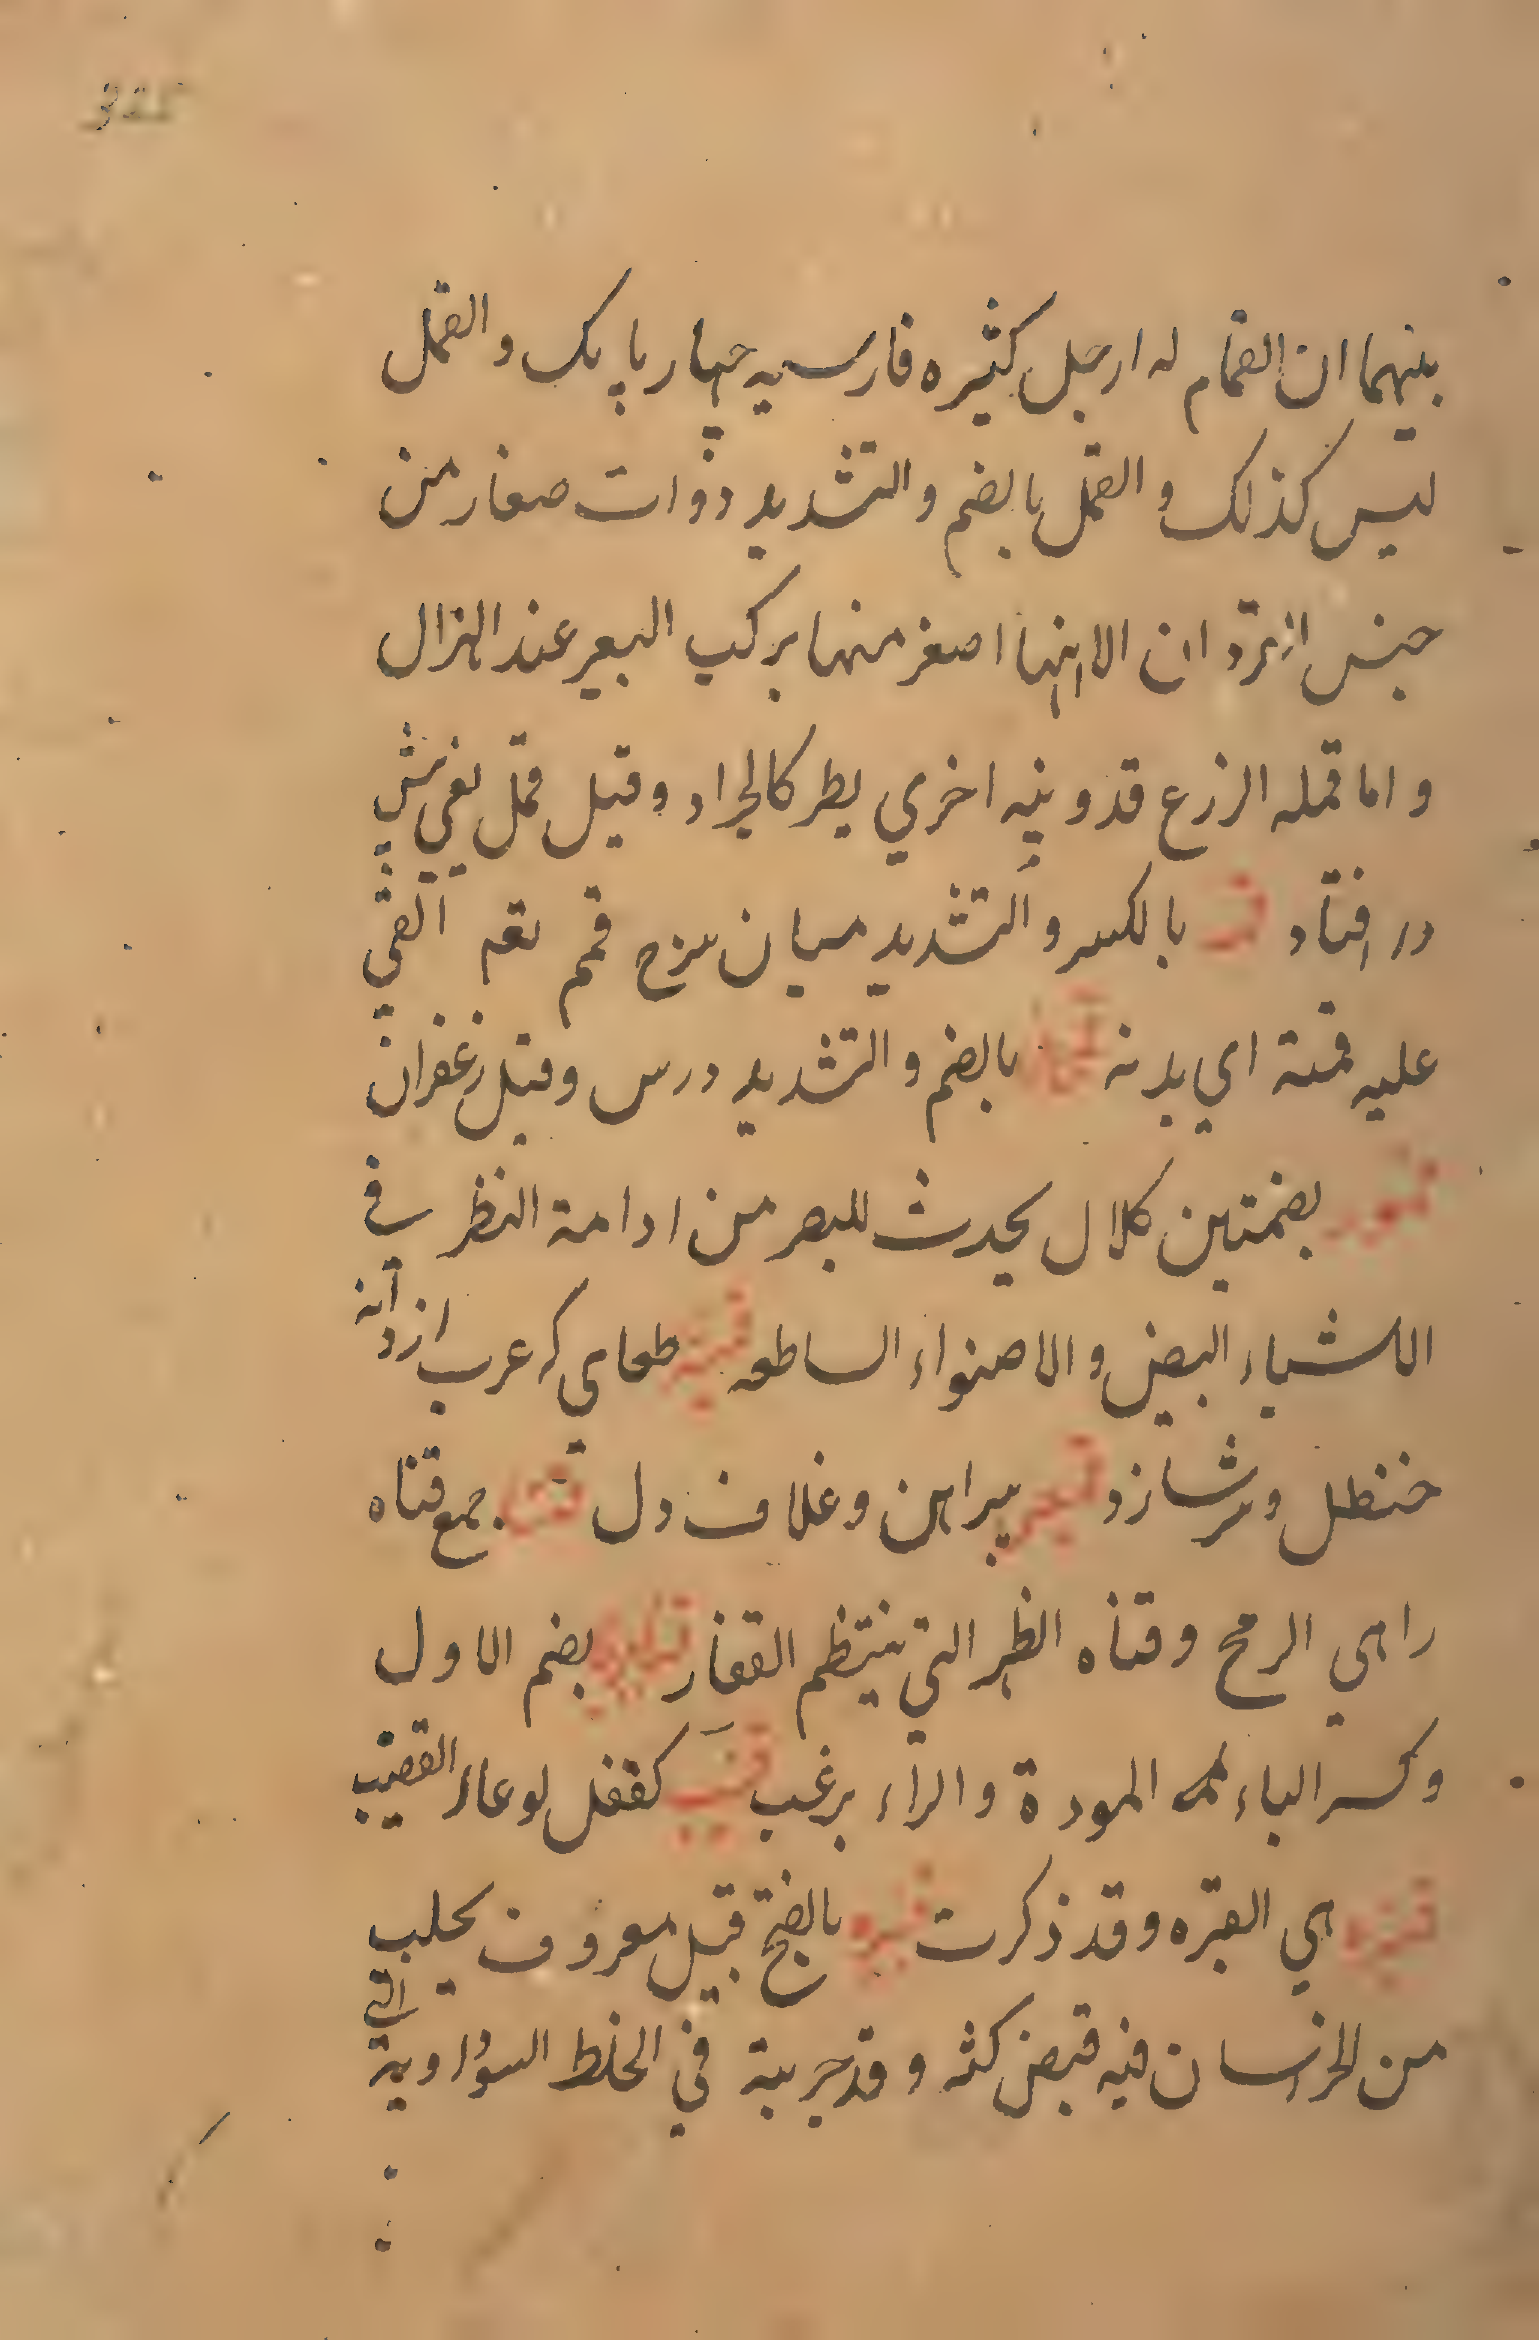 325
بينهما ان القمام له ارجل كثيره فارسيه چهار پا يك و القمل
ليس كذلك و القمل بالضم و التشديد ذوات صغار من
جنس القرد ان الا انها اصغر منها يركب البعير عند الهزال
و اما قمله الزرع فدوبيه اخري يطر كالجراد و قيل قمل يعني شپش
در افتاد بالكسر و التشديد ميان سرح قمم يقم القي
عليه قمته اي بدنه بالضم و التشديد درس و قيل زعفران
قمور بضمتين كلال يحدث للبصر من ادامة النظر في
الاشياء البيض و الاضواء الساطعه طعامي كه عرب از دانه
حنظل و ترشازد پيراهن و غلاف دل قنا جمع قناه
را هي الرمح و قناه الظهر التي ينتظم القفار بضم الاول
و كسر الباء المودة و الراء برغب قنب كقفل لوعاء القضيب
قنبره هي القبره و قد ذكرت بالفتح قيل معروف يحلب
من الخراسان فيه قبض كثه و قد جربية في الخلط السوداوية التي